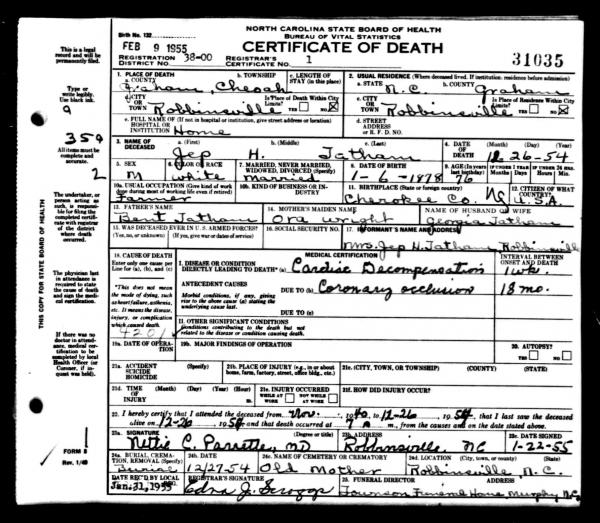 NORTH CAROLINA STATE BOARD OF HEALTH
BUREAU OF VITAL STATISTICS
CERTIFICATE OF DEATH
Birth No. 132
FEB 9 1955
REGISTRATION DISTRICT NO. 38-00
REGISTRAR'S CERTIFICATE NO. 1
31035
This is a legal record and will be permanently filed.
Type or write legibly. Use black ink.
9
359
All items must be complete and accurate.
2
The undertaker, or person acting as such, is responsible for filing the completed certificate with registrar of the district where death occurred.
The physician last in attendance is required to state the cause of death and sign the medical certification.
If there was no doctor in attendance, medical certification to be completed by local Health Officer (or Coroner, if inquest was held).
FORM 8
Rev. 1/49
THIS COPY FOR STATE BOARD OF HEALTH
1. PLACE OF DEATH
a. COUNTY Graham,
b. TOWNSHIP Cheoah
c. LENGTH OF STAY (in this place)
d. CITY OR TOWN Robbinsville
Is Place of Death Within City Limits? YES NO
e. FULL NAME OF HOSPITAL OR INSTITUTION (If not in hospital or institution, give street address or location) Home
2. USUAL RESIDENCE (Where deceased lived. If institution: residence before admission)
a. STATE N.C.
b. COUNTY Graham
c. CITY OR TOWN Robbinsville
Is Place of Residence Within City Limits? YES NO
d. STREET ADDRESS OR R. F. D. NO.
3. NAME OF DECEASED
a. (First) Jep
b. (Middle) H.
c. (Last) Jatham
4. DATE OF DEATH 12-26-54
5. SEX M
6. COLOR OR RACE White
7. MARRIED, NEVER MARRIED, WIDOWED, DIVORCED (Specify) Married
8. DATE OF BIRTH 1-6-1878
9. AGE (In years last birthday) 76
10a. USUAL OCCUPATION (Give kind of work done during most of working life even if retired) Farmer
10b. KIND OF BUSINESS OR INDUSTRY
11. BIRTHPLACE (State or foreign country) Cherokee Co. NC
12. CITIZEN OF WHAT COUNTRY? U.S.A.
13. FATHER'S NAME Bent Jatham
14. MOTHER'S MAIDEN NAME Ora Wright
NAME OF HUSBAND OR WIFE Georgia Jatham
15. WAS DECEASED EVER IN U.S. ARMED FORCES?
(Yes, no, or unknown) (If yes, give war or dates of service)
16. SOCIAL SECURITY NO.
17. INFORMANT'S Mrs. Jep H. Jatham Robbinsville
18. CAUSE OF DEATH
Enter only one cause per line for (a), (b), and (c)
MEDICAL CERTIFICATION
INTERVAL BETWEEN ONSET AND DEATH
I. DISEASE OR CONDITION DIRECTLY LEADING TO DEATH* (a) Cardiac Decompensation 1 wk.
*This does not mean the mode of dying, such as heart failure, asthenia, etc. It means the disease, injury, or complication which caused death.
4201
ANTECEDENT CAUSES
Morbid conditions, if any, giving rise to the above cause (a) stating the underlying cause last.
DUE TO (b) Coronary occlusion 18 mo.
DUE TO (c)
II. OTHER SIGNIFICANT CONDITIONS
Conditions contributing to the death but not related to the disease or condition causing death.
19a. DATE OF OPERATION
19b. MAJOR FINDINGS OF OPERATION
20. AUTOPSY? YES NO
21a. ACCIDENT SUICIDE HOMICIDE (Specify)
21b. PLACE OF INJURY (e.g., in or about home, farm, factory, street, office bldg., etc.)
21c. (CITY, TOWN, OR TOWNSHIP) (COUNTY) (STATE)
21d. TIME OF INJURY (Month) (Day) (Year) (Hour)
21e. INJURY OCCURRED WHILE AT WORK NOT WHILE AT WORK
21f. HOW DID INJURY OCCUR?
22. I hereby certify that I attended the deceased from Nov. to 12-26, 1954, that I last saw the deceased
alive on 12-26, 1954 and that death occurred at 7 m., from the causes and on the date stated above.
23a. SIGNATURE (Degree or title) Nettie C. Parrette, MD
23b. ADDRESS Robbinsville, NC
23c. DATE SIGNED 1-22-55
24a. BURIAL, CREMATION, REMOVAL (Specify) Burial
24b. DATE 12/27-54
24c. NAME OF CEMETERY OR CREMATORY Old Mother
24d. LOCATION (City, town, or county) (State) Robbinsville, N.C.
DATE REC'D BY LOCAL REG. Jan. 31, 1955
REGISTRAR'S SIGNATURE Edna J. Scroggs
25. FUNERAL DIRECTOR Townson Funeral Home Murphy N.C.